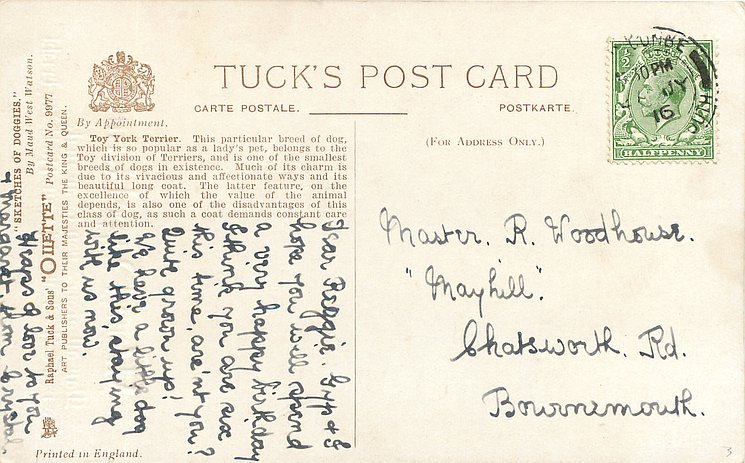 TUCK'S POST CARD
CARTE POSTALE.
POSTKARTE.
By Appointment.
(FOR ADDRESS ONLY.)
Toy York Terrier. This particular breed of dog,
which is so popular as a lady's pet, belongs to the
Toy division of Terriers, and is one of the smallest
breeds of dogs in existence. Much of its charm is
due to its vivacious and affectionate ways and its
beautiful long coat. The latter feature, on the
excellence of which the value of the animal
depends, is also one of the disadvantages of this
class of dog, as such a coat demands constant care
and attention.
"SKETCHES OF DOGGIES."
By Maud West Watson.
Raphael Tuck & Sons' "OILETTE" Postcard No. 9977
ART PUBLISHERS TO THEIR MAJESTIES THE KING & QUEEN.
Printed in England.
Dear Reggie. Gyp & I
hope you will spend
a very happy birthday
I think you are six
this time, are'nt you?
Quite grown up!
We have a little dog
like this, staying
with us now.
Heaps of love to you
& Margaret from
Master. R. Woodhouse.
"Mayhill".
Chatsworth. Rd.
Bournemouth.
COMBE
PM
16
HALFPENNY
3